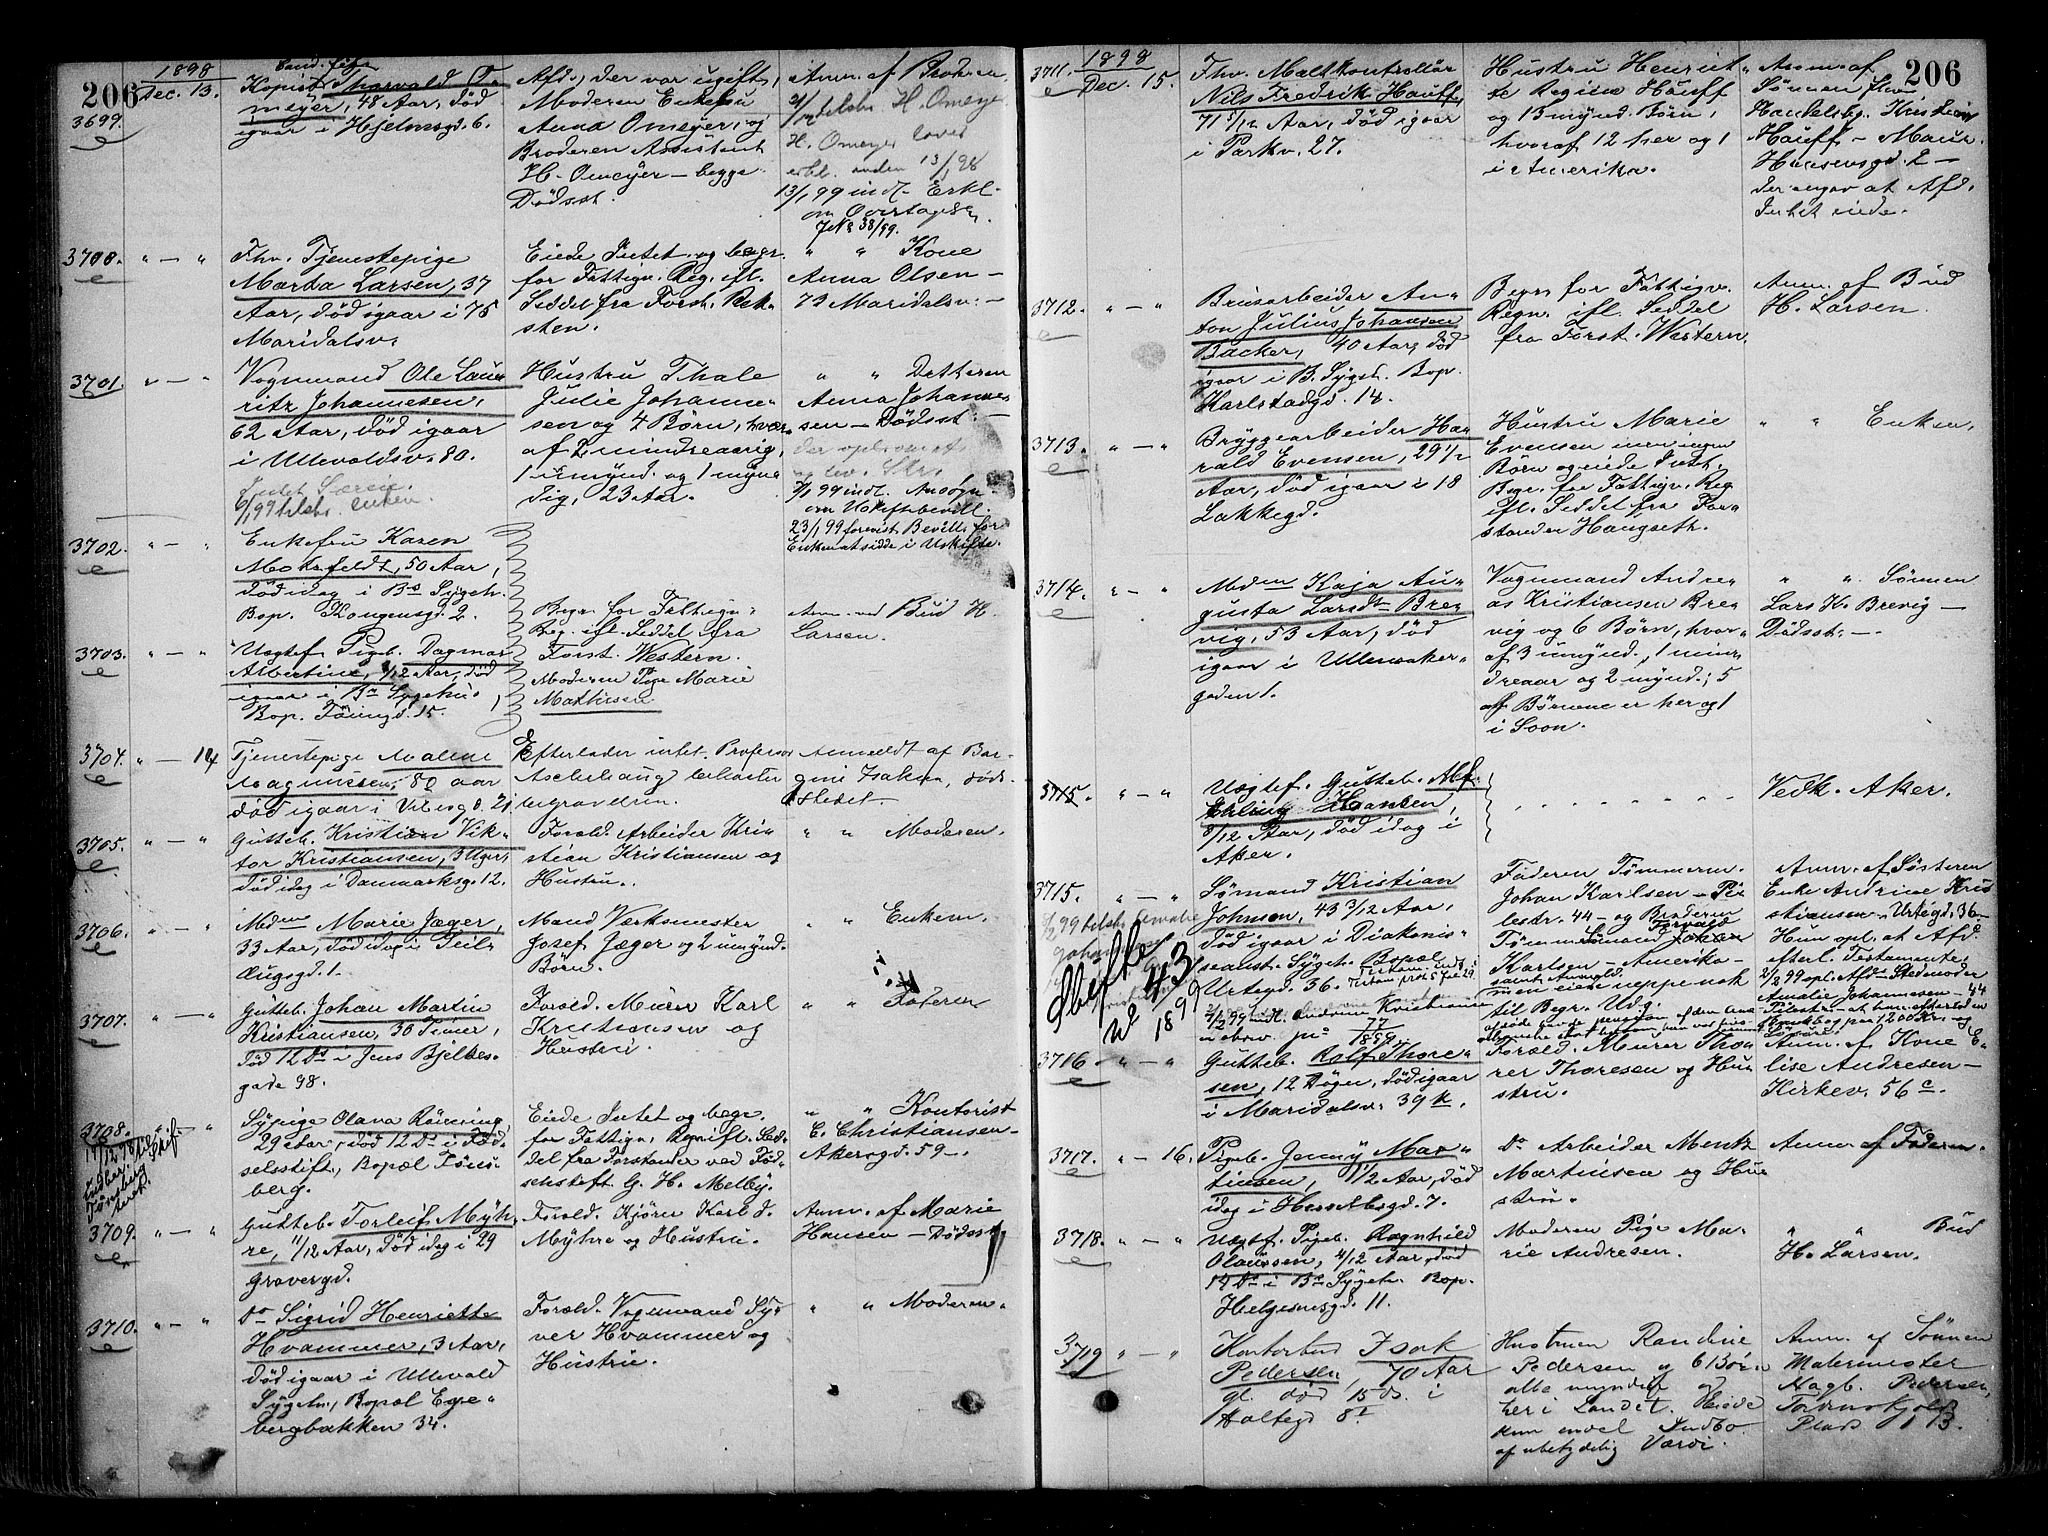 206
1898
Dec. 13.
3699.
Cand. filos.
Kopist Thorvald O=
meyer, 48 Aar, død
igaar i Hjelmsgd. 6.
Afd., der var ugift,
Moderen Enkefru
Anna Omeyer, og
Broderen Assistent
H. Omeyer — begge
Dødsst.
Anm. af Broderen
H. Omeyer
H. Omeyer lover
erkl. inden 13/1 98
13/1 99 indl. Erkl.
om Overtagelse
JNo 38/99.
3700. " — "
Fhv. Tjenestepige
Marta Larsen, 37
Aar, død igaar i 75
Maridalsv.
Eiede Intet og begr.
for Fattigv. Reg. ifl.
Seddel fra Forst. Rek=
sten.
" " Kone
Anna Olsen —
73 Maridalsv. —
3701. " — "
Vognmand Ole Lau=
ritz Johannesen,
62 Aar, død igaar
i Ullevaldsv. 80.
Intet Særeie.
6/1 99 tilsbr. enken.
Hustru Thale
Julie Johanne=
sen og 4 Børn, hvor=
af 2 mindreaarig,
1 umynd. og 1 myn=
dig, 23 Aar.
" " Datteren
Anna Johanne=
sen — Dødsst. —
der oplyser at
9/1 99 indl. Ansøgn.
om Uskiftebevill.
23/1 99 forevist Bevill. for
Enken at sidde i Uskifte.
3702. " — "
Enkefru Karen
Motzfeldt, 50 Aar,
død idag i Bs Sygeh.
Bop. Kongensgd. 2.
Begr. for Fattigv.
Reg. ifl. Seddel fra
Forst. Western.
Anm. ved Bud H.
Larsen.
3703. " — "
Uægtef. Pigeb. Dagmar
Albertine, /12 Aar, død
igaar i Bs Sygehus,
Bop. Tøiengd. 15.
Moderen Pige Marie
Mathisen
3704. " — 14
Tjenestepige Malene
Magnussen, 80 aar
død igaar i Vibesg 8. 21
Efterlader intet. Professor
Aschehoug bekoster
begravelsen.
Anmeldt af Bor=
gine Isaksen, døds=
stedet
3705. " — "
Gutteb. Kristian Vik=
tor Kristiansen, 3 Uger,
død idag i Danmarksg. 12.
Foræld. Arbeider Kri=
stian Kristiansen og
Hustru.
" " Moderen.
3706. " — "
Mdme Marie Jæger,
33 Aar, død idag i Teil=
laugsgd. 1.
Mand Værksmester
Josef Jæger og 2 umynd.
Børn.
" Enkem.
3707. " — "
Gutteb. Johan Martin
Kristiansen, 36 Timer,
død 12 ds i Jens Bjelkes=
gade 98.
Foræld. Murer Karl
Kristiansen og
Hustru.
" " Faderen
3708. " — "
Sypige Olava Rønning,
29 Aar, død 12 ds i Fød=
selsstift., Bopæl Tøns=
berg.
Eiede Intet og begr.
for Fattigv. Reg. ifl. Sed=
del fra Forstander ved Fød=
selsstift. G. H. Melby.
" " Kontorist
C. Christiansen —
Akersgd. 59 —.
3709. " — "
Gutteb. Torleif Myh=
re, 11/12 Aar, død idag i 29
Gravergd.
Foræld. Kjører Karl J.
Myhre og Hustru.
Anm. af Marie
Hansen — Dødsst.
3710. " — "
Do Sigrid Henriette
Hvammer, 3 Aar,
død igaar i Ullevald
Sygeh., Bopæl Eke=
bergbakken 34.
Foræld. Vognmand Sy=
ver Hvammer og
Hustru.
" " Moderen.
206
1898
3711. Dec. 15.
Fhv. Maltkontrollør
Nils Fredrik Hauff,
71 5/12 Aar, død igaar
i Parkv. 27.
Hustru Henriet=
te Regine Hauff
og 13 mynd. Børn,
hvoraf 12 her og 1
i Amerika.
Anm. af
Sønnen fhv.
Handelsbg. Kristian
Hauff — Maur.
Hansensgd. 2 —
der angav at Afd.
Intet eiede.
3712. " — "
Brusarbeider An=
ton Julius Johansen
Backer, 40 Aar, død
igaar i B. Sygeh. Bop.
Karlstadgd. 14.
Begr. for Fattigv.
Regn. ifl. Seddel
fra Forst. Western.
Anm. af Bud
H. Larsen.
3713. " — "
Bryggearbeider Ha=
rald Evensen, 29 1/2
Aar, død igaar i 18
Lakkegd.
Hustru Marie
Evensen men ingen
Børn og eiede Intet.
Begr. for Fattigv. Reg.
ifl. Seddel fra For=
stander Haugseth.
" " Enken.
3714. " — "
Mdmen Kaja Au=
gusta Larsdtr Bre=
vig, 53 Aar, død
igaar i Ullensaker=
gaden 1.
Vognmand Andre=
as Kristiansen Bre=
vig og 6 Børn, hvor=
af 3 umynd., 1 min=
dreaar og 2 mynd.; 5
af Børnene er her og 1
i Soon.
" " Sønnen
Lars H. Brevig —
Dødsst. —.
3715. " — "
Uægtef. Gutteb. Alf
Erling Hansen,
8/12 Aar, død idag i
Aker.
Vedk. Aker.
3715. " — "
Sømand Kristian
Johnsen, 43 3/12 Aar,
død igaar i Diakonis=
seanst. Sygeh. Bopæl
Urtegd. 36.
Skifte
No 43
1899
Faderen Tømmerm.
Johan Karlsen — Pi=
lestr. 44 — og Broderen
Tømmermand Torvald
Karlsen — Amerika —
samt Arnold.
men eiede neppe nok
til Begr. Udg.
Anm. af Søsteren
Enke Andrine Kri=
stiansen — Urtegd. 36 —
Hun opl. at Afd.
efterl. Testamente.
2/2 99 opl. Afds Stedmoder
Amalie Johannesen — 44
Pilestr. — at han efterlod
3716. " — "
Gutteb. Rolf Thore=
sen, 12 Døgn, død igaar
i Maridalsv. 39 k.
Foræld. Murer Tho=
rer Thoresen og Hu=
stru.
Anm. af Kone E=
lise Andresen —
Kirkev. 56 c.
3717. " — 16.
Pigeb. Jenny Mar=
tinsen, 1/2 Aar, død
idag i Hesselbergd. 7.
Do Arbeider Mentz
Martinsen og Hu=
stru.
Anm. af Faderen.
3718. " — "
Uægtef. Pigeb. Ragnhild
Olaussen, 4/12 Aar, død
14 ds i Bs Sygeh. Bop.
Helgesensgd. 11.
Moderen Pige Ma=
rie Andresen.
" " Bud
H. Larsen.
3719 " — "
Kontorbud Isak
Pedersen, 70 Aar
gl. død 15 ds. i
Holtegd 8 I
Hustruen Randine
Pedersen og 6 Børn
alle myndige og
her i Landet. Eiede
kun endel Indbo
af ubetydelig Værdi.
Anm. af Sønnen
Malermester
Hagb. Pedersen,
Tordenskjolds
Plads 1 B.